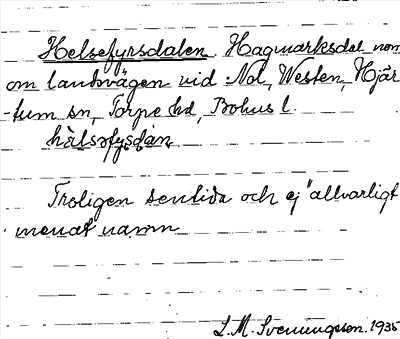 Helsefyrsdalen. Hagmarksdal norr
om landsvägen vid Nol, Westen, Hjär
-tum sn, Torpe hd, Bohus l.
hälsefysdan
Troligen sentida och ej "allvarligt
menat namn
S.M. Svenungsson. 1935